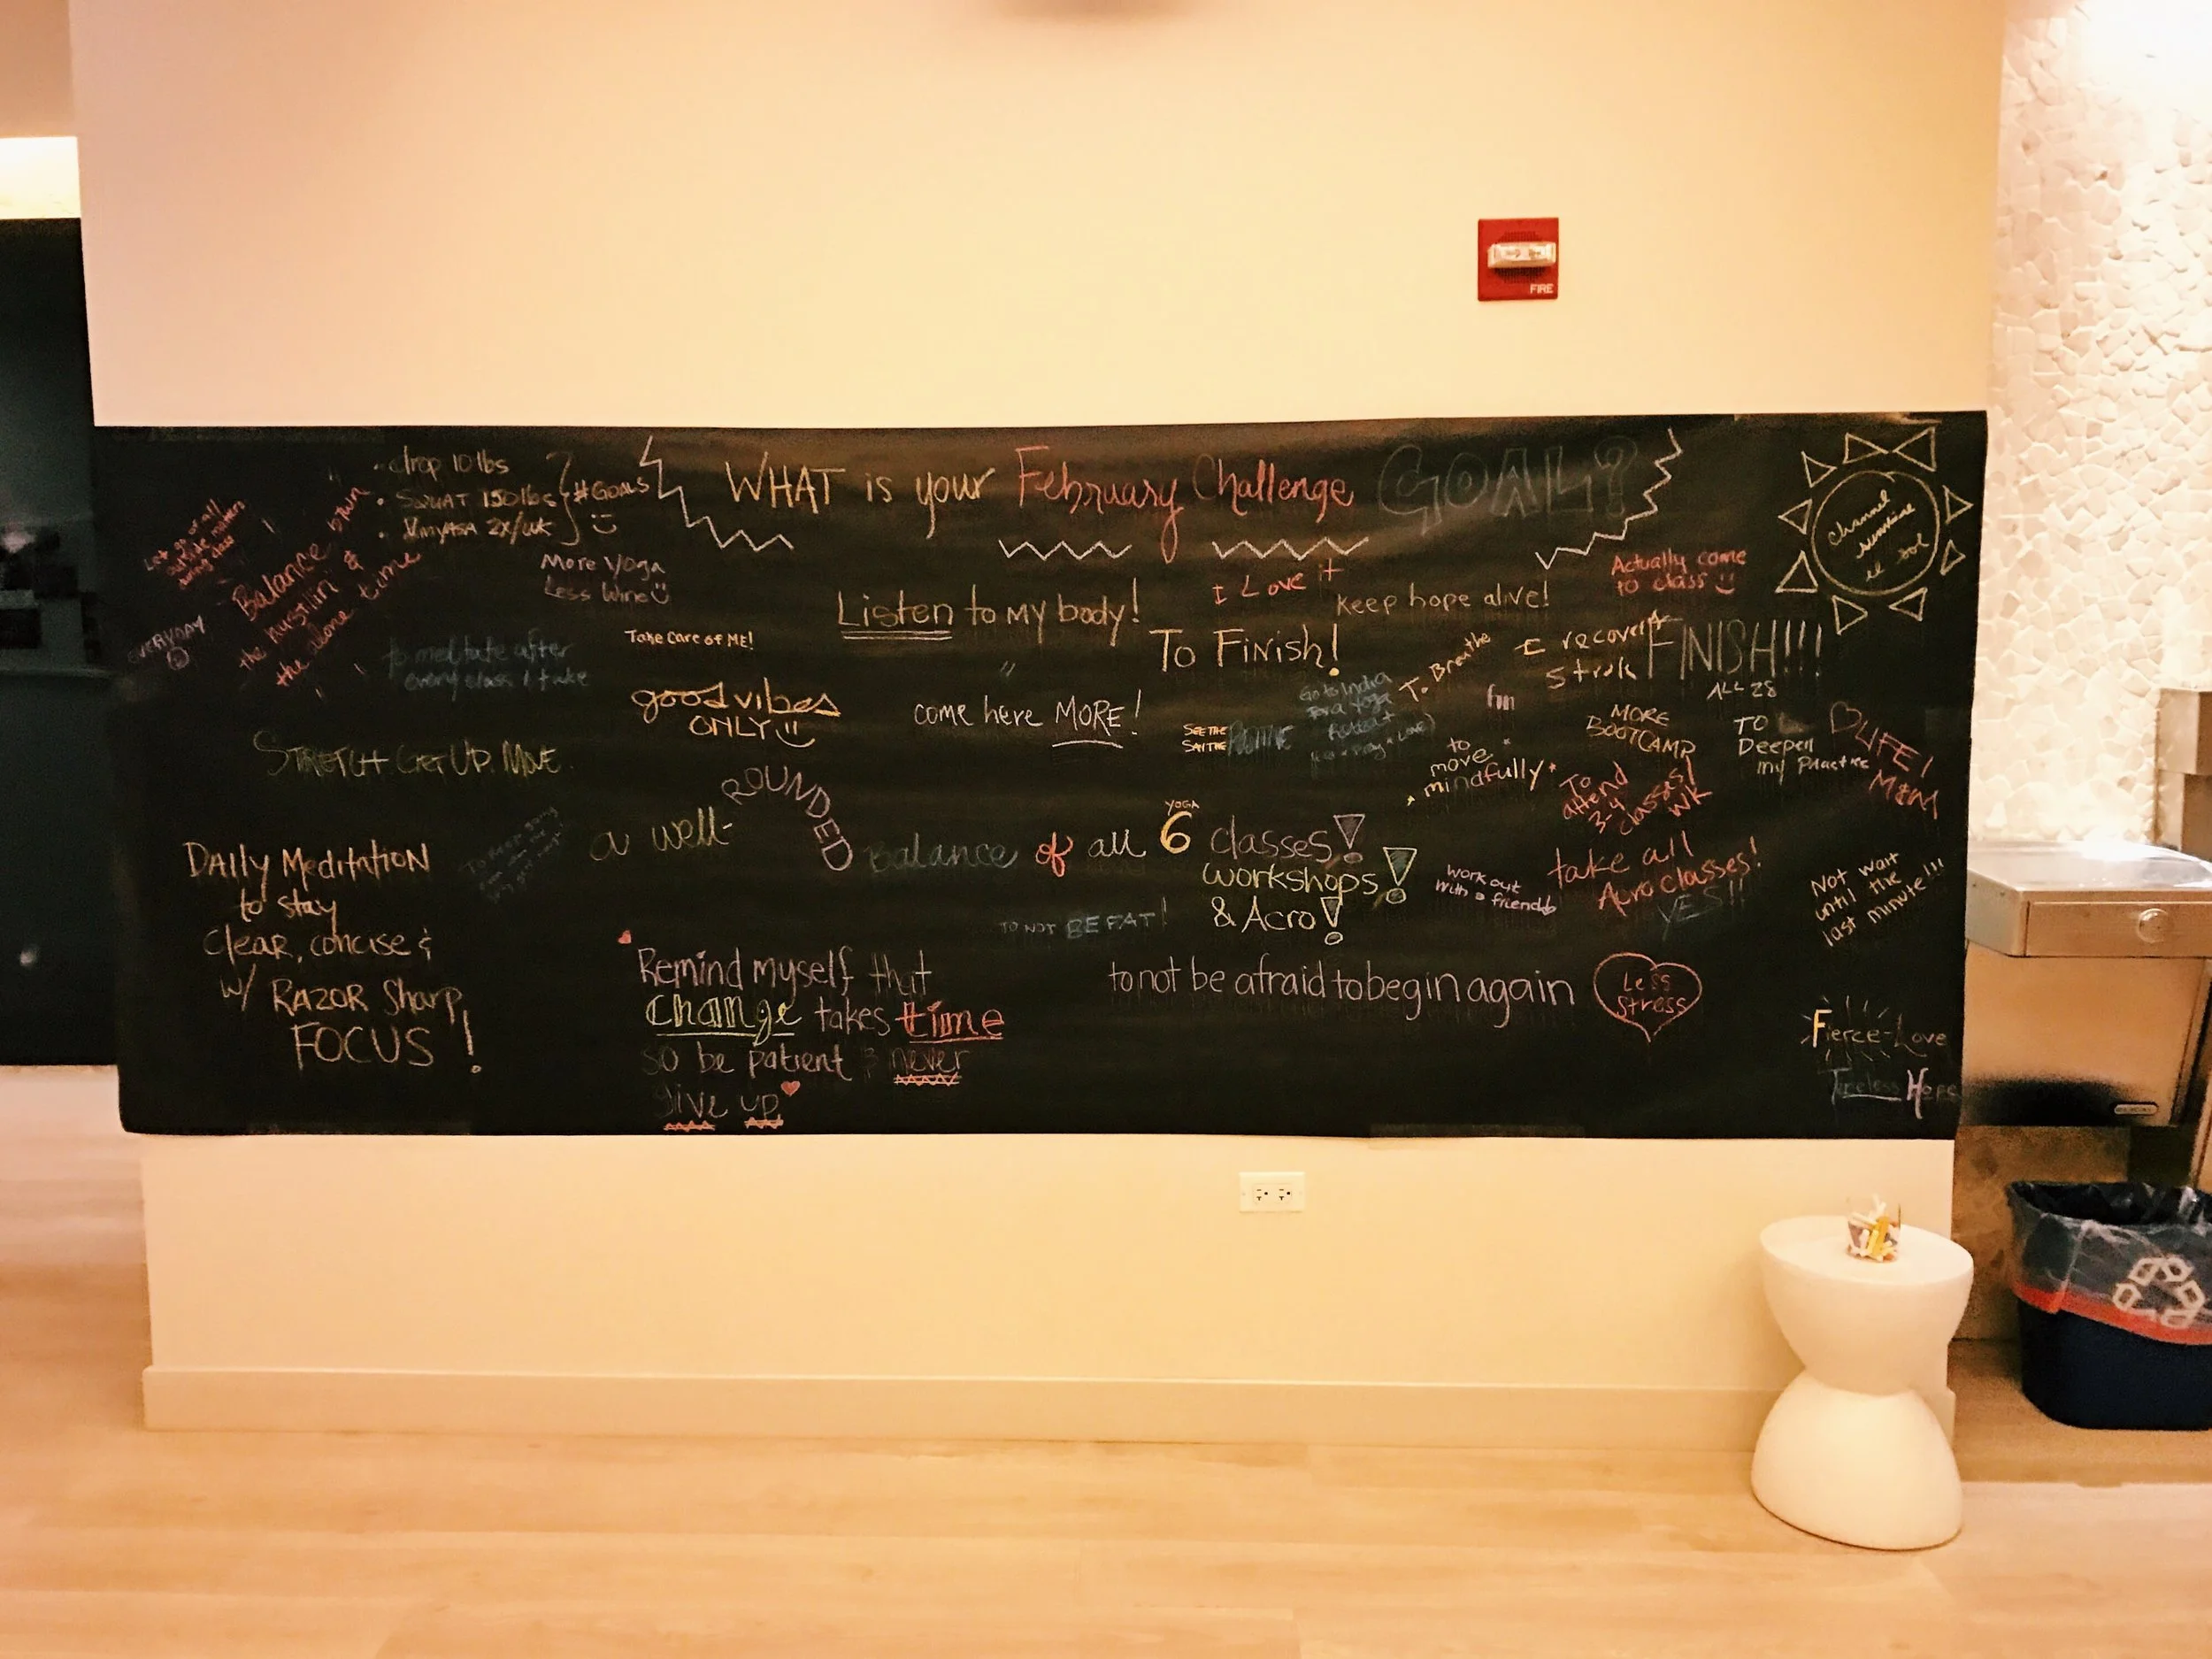 WHAT is your February Challenge GOAL?
- drop 10 lbs
• SQUAT 150 lbs
• VINYASA 2x/wk
#GOALS
Let go of all
outside matters
during class
EVERYDAY
Balance btwn
the &
the alone time
More Yoga
Less Wine
to meditate after
every class I take
Take Care of ME!
good vibes
ONLY
STRETCH. GET UP. MOVE.
Listen to my body!
I Love it
keep hope alive!
To Finish!
come here MORE!
SEE THE
SAY THE
POSITIVE
Go to India
for a Yoga
Retreat
To Breathe
recover
FINISH!!!
ALL 28
fun
Actually come
to class
Channel
sunshine
MORE
BOOTCAMP
TO
Deepen
my Practice
LIFE!
M&M
to
move
mindfully
To
attend
3-4
classes/
wk
a well-ROUNDED Balance of all 6 classes!
YOGA
workshops!
& Acro!
TO NOT BE FAT!
work out
with a friend
take all
Acro classes!
YES!!
Not wait
until the
last minute!!!
DAILY MEDITATION
to stay
Clear, concise &
w/ RAZOR Sharp
FOCUS!
Remind myself that
change takes time
so be patient & never
give up
to not be afraid to begin again
Less
Stress
Fierce-Love
Timeless Hope
FIRE